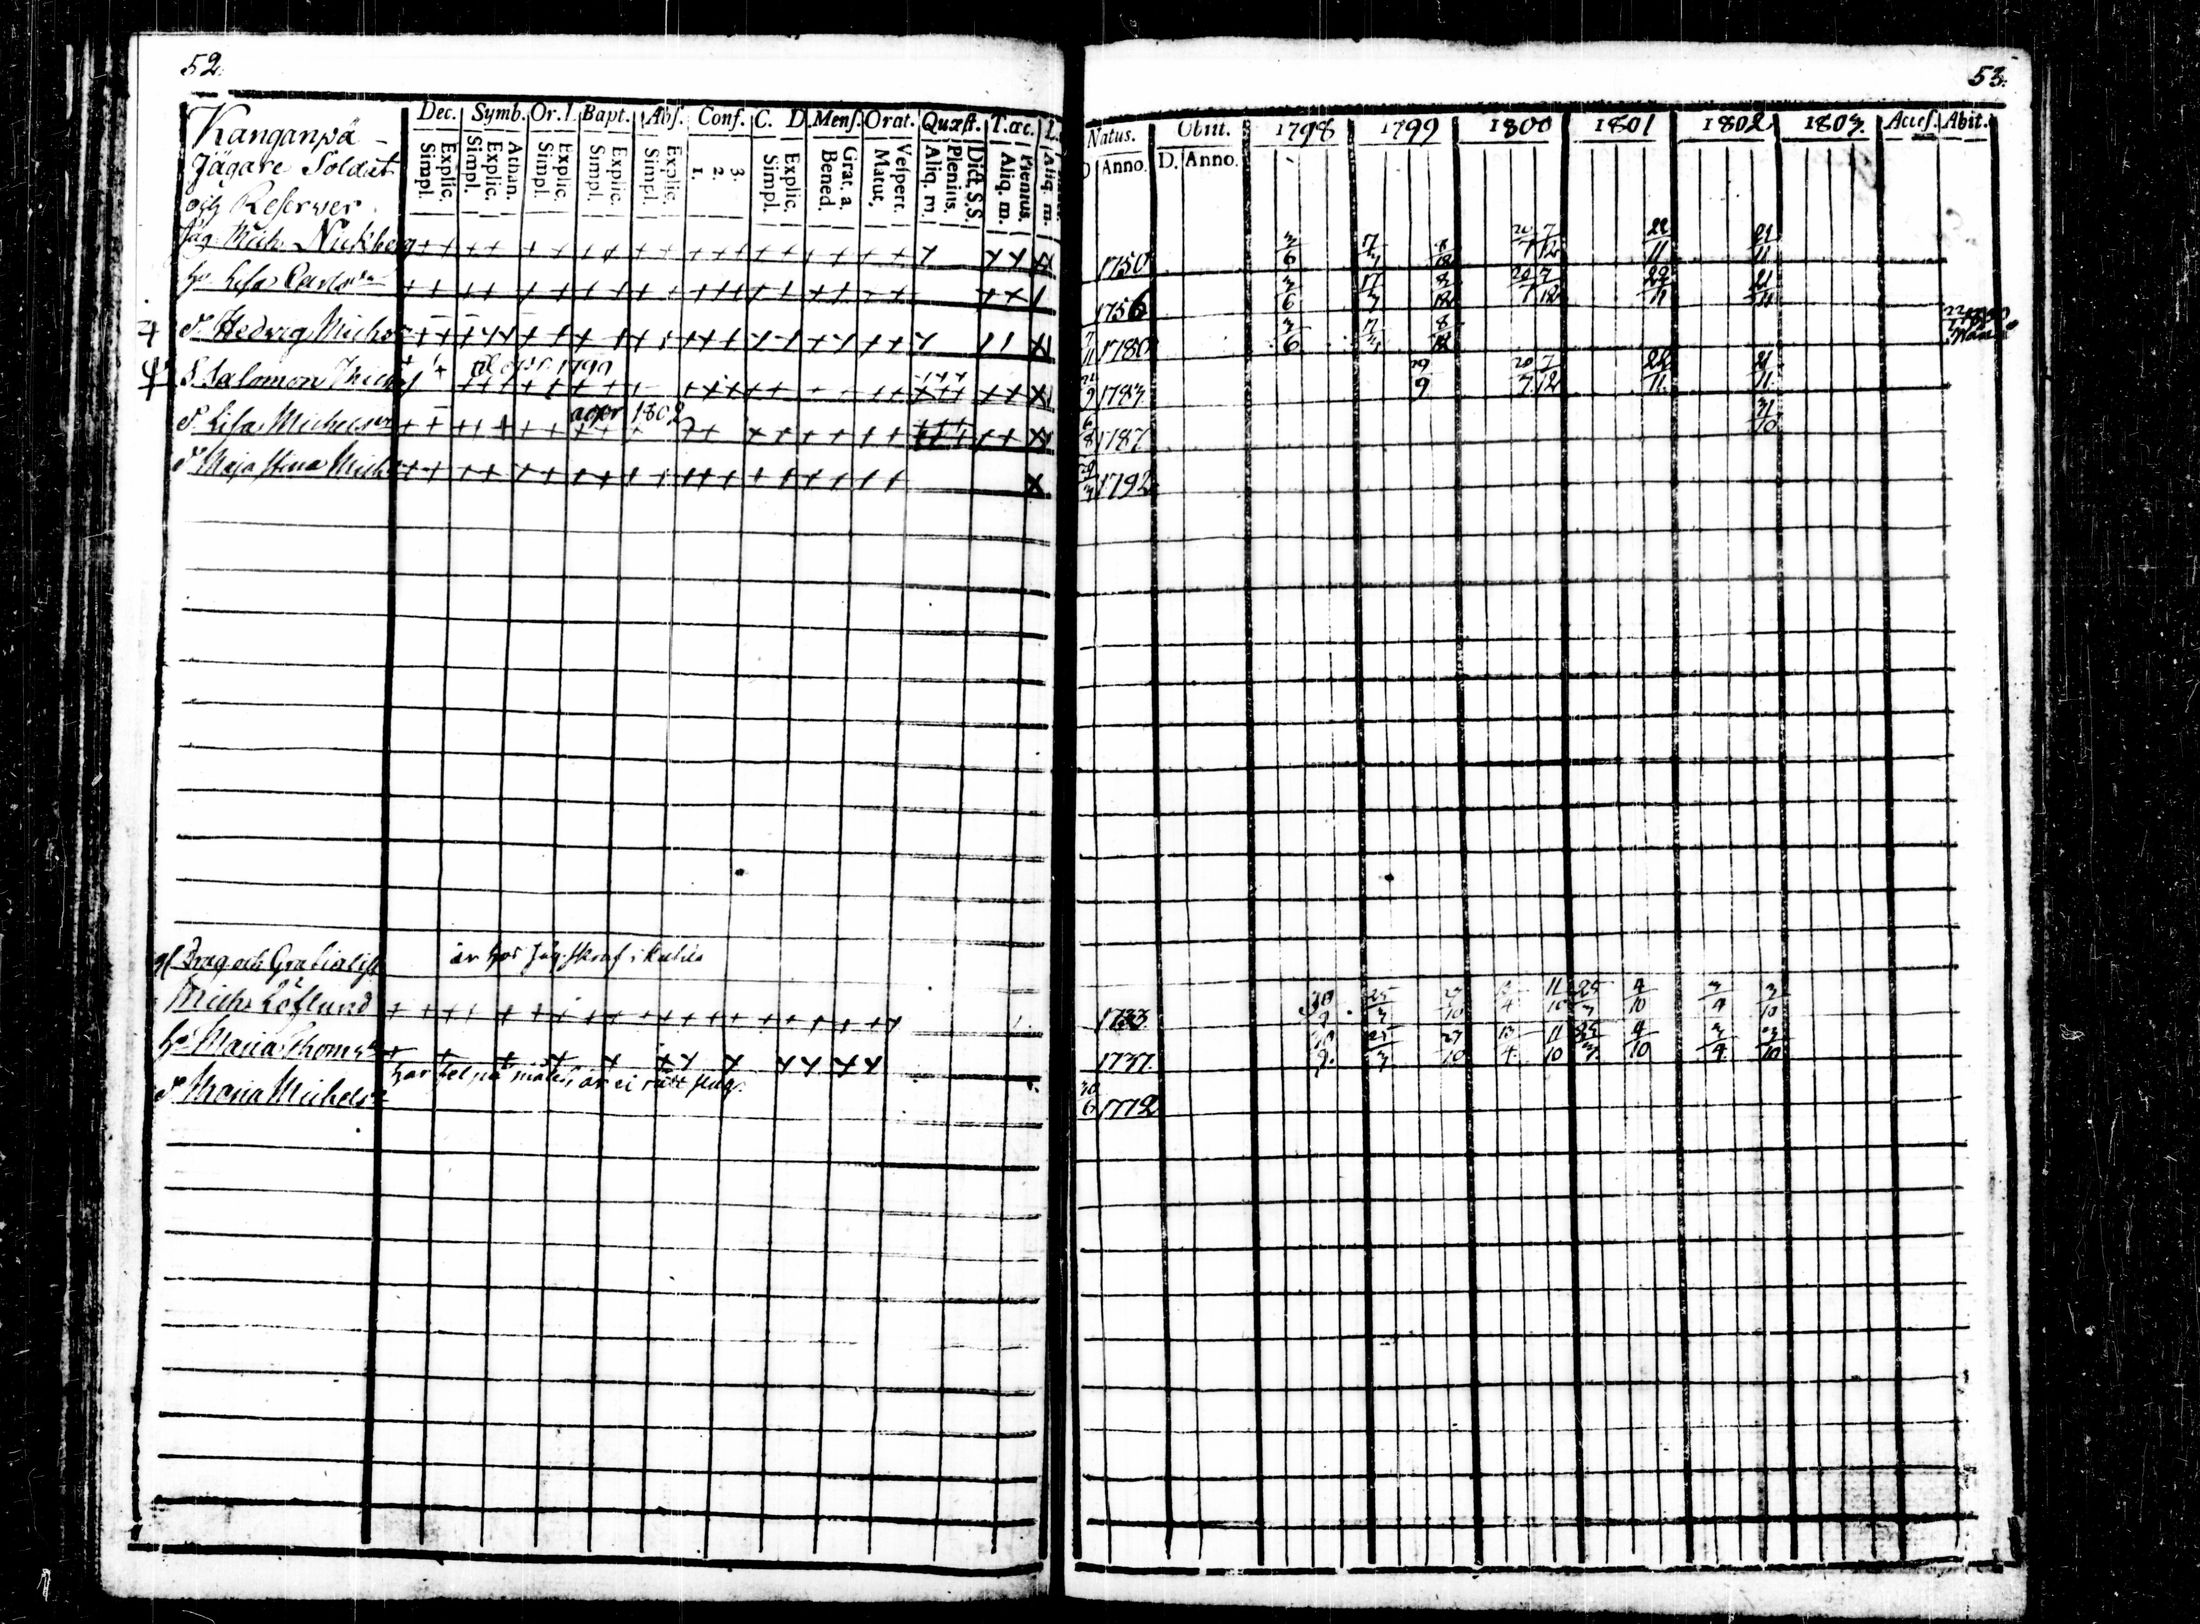 52.
Kanganpä
Jägare Soldat
och Reserver
Dec. Symb. Or. I. Bapt. Abs. Conf. C. D. Mens. Orat. Quæst. T. œc.
Simpl. Explic. Simpl. Explic. Athan. Simpl. Explic. Simpl. Explic. Simpl. Explic. 1. 2. 3. Simpl. Explic. Bened. Grat. a. Matut. Vespert. Aliq. m. Plenius. Dict. S.S. Aliq. m. Plenius. Aliq. m.
Jäg. Mich. Nickberg
hu Lisa Carls
Dr Hedvig Michels
S. Salomon Mich
1799
Dr Lisa Michelsdr
1802
Dr Maja Stina Mich
gl. Drag. och Gratialist
är hos Jäg. Skruf i
Mich. Löflund
hu Maria Thomsdr
Dr Maria Michelsdr
har fel på målet, är ei rätt slug.
53.
Natus. Obiit. 1798 1799 1800 1801 1802 1803. Acces. Abit.
D Anno. D. Anno.
1750 3/6 17/3 8/12 20/7 7/12 22/11 21/11
1756 3/6 17/3 8/12 20/7 7/12 22/11 21/11
7/11 1780 3/6 17/3 8/12
9 1783 29/9 20/7 7/12 22/11 21/11
6/8 1787 31/10
29/3 1792
1733 30/9 25/3 27/10 13/4 11/10 25/3 4/10 3/4 3/10
1737. 30/9. 25/3 27/10 13/4 11/10 25/3 4/10 3/4 3/10
30/6 1772